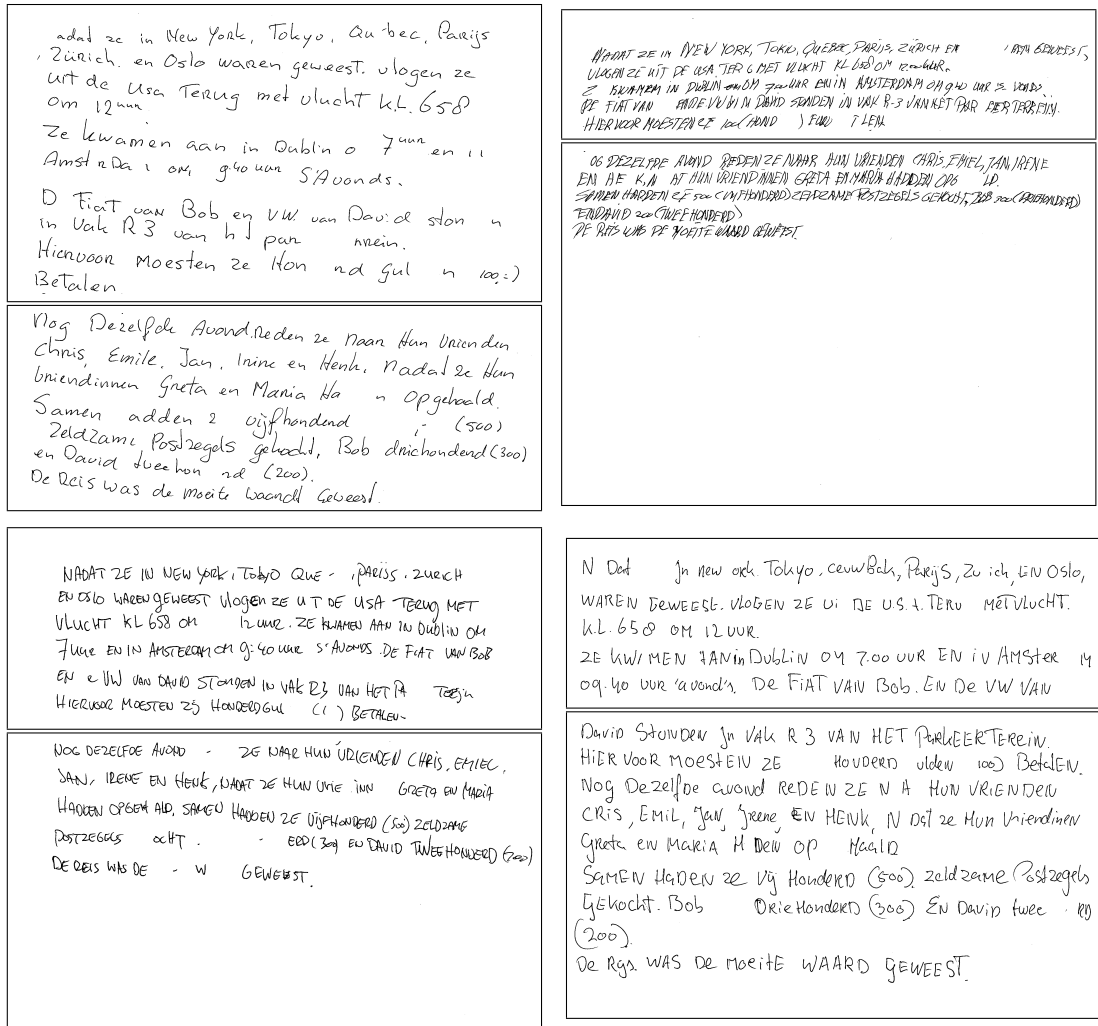 adat ze in New York, Tokyo, Qu bec, Parijs
, Zürich. en Oslo waren geweest. vlogen ze
uit de Usa Terug met vlucht K.L. 658
om 12 uur
Ze kwamen aan in Dublin o 7 uur en
Amst rDa om, 9:40 uur S'Avonds.
D Fiat van Bob en VW van David ston n
in Vak R 3 van h t par rrein.
Hiervoor Moesten ze Hon rd gul n 100,=)
Betalen
Nog Dezelfde Avond.Reden ze naar Hun Vrienden
Chris, Emile, Jan, Irine en Henk, Nadat ze Hun
vriendinnen Greta en Maria Ha n opgehaald.
Samen adden z vijfhonderd (500)
Zeldzame Postzegels gekocht, Bob driehonderd (300)
en David tweehon rd (200).
De Reis was de moeite waardt Geweest.
NADAT ZE IN NEW YORK, TOKIO, QUEBEC, PARIJS, ZÜRICH EN GEWEEST,
VLOGEN ZE UIT DE USA TER G MET VLUCHT KL 658 OM 12.00 UUR.
Z KWAMEN IN DUBLIN OM 7.00 UUR EN IN AMSTERDAM OM 9.40 UUR 'S AVONDS.
DE FIAT VAN EN DE VW VAN DAVID STONDEN IN VAK R-3 VAN HET PAR EERTERREIN.
HIERVOOR MOESTEN ZE 100 (HOND )
OG DEZELFDE AVOND REDEN ZE NAAR HUN VRIENDEN CHRIS, EMIEL, JAN, IRENE
EN HE K, N AT HUN VRIENDINNEN GRETA EN MARIA HADDEN OPG LD.
SAMEN HADDEN ZE 500 (VIJFHONDERD) ZELDZAME POSTZEGELS GEKOCHT, BOB 300 (DRIEHONDERD)
EN DAVID 200 (TWEEHONDERD)
DE REIS WAS DE MOEITE WAARD GEWEEST.
NADAT ZE IN NEW YORK, TOKYO QUE - , PARIJS, ZURICH
EN OSLO WAREN GEWEEST VLOGEN ZE U T DE USA TERUG MET
VLUCHT KL 658 OM 12 UUR. ZE KWAMEN AAN IN DUBLIN OM
7 UUR EN IN AMSTERDAM OM 9:40 UUR S'AVONDS. DE FIAT VAN BOB
EN e VW VAN DAVID STONDEN IN VAK R3 VAN HET PA
HIERVOOR MOESTEN ZIJ HONDERD GUL (1 ) BETALEN-
NOG DEZELFDE AVOND - ZE NAAR HUN VRIENDEN CHRIS, EMIEL,
JAN, IRENE EN HENK, NADAT ZE HUN VRIE INN GRETA EN MARIA
HADDEN OPGEH ALD, SAMEN HADDEN ZE VIJFHONDERD (500) ZELDZAME
POSTZEGELS OCHT. - ERD (300) EN DAVID TWEEHONDERD (200)
DE REIS WAS DE - W GEWEEST.
N Dat In new ork. Tokyo, ceuwBak, Parijs, Zu ich, EN Oslo,
WAREN GEWEEST. VLOGEN ZE Ui DE U.S.A. TERU MET VLUCHT.
K.L. 658 OM 12 UUR.
ZE KWAMEN AAN in Dublin OM 7.00 UUR EN iN AMSTER M
09.40 UUR 'avond's. De FiAT VAN Bob. EN De VW VAN
David StONDEN In VAK R 3 VAN HET PARKEERTEREIN.
HiER VOOR MOESTEN ZE HONDERD ulden 100) BetalEN.
Nog Dezelfde avond REDEN ZE N A HUN VRIENDEN
CRIS, EMiL, Jan, Irene, EN HENK, N Dat ze Hun Vriendinen
Greta en Maria H Den op HaalD
SAMEN HaDEN ze Vij HonderD (500). zeldzame Postzegels
GEKocht. Bob DRieHonderD (300) EN DaviD twee RD
(200).
De Rijs. WAS De MoeitE WAARD GEWEEST.